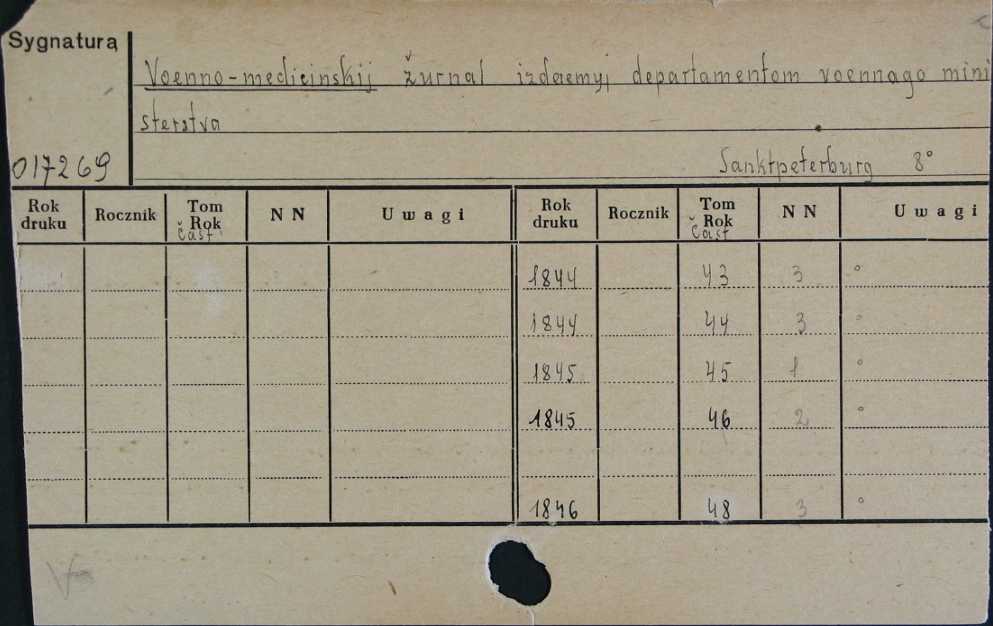 Sygnatura
Voenno-medicinskij žurnal izdaemyj departamentom voennago mini
sterstva
017269
Sanktpeterburg 8°
Rok druku Rocznik Tom Rok Čast' N N Uwagi Rok druku Rocznik Tom Rok Čast' N N Uwagi
1844 43 3 °
1844 44 3 °
1845 45 1 °
1845 46 2 °
1846 48 3 °